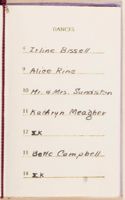 DANCES
8 Irline Bissell
9 Alice Rine
10 Mr. & Mrs. Sundston
11 Kathryn Meagher
12 ΣX
13 Bette Campbell
14 ΣX